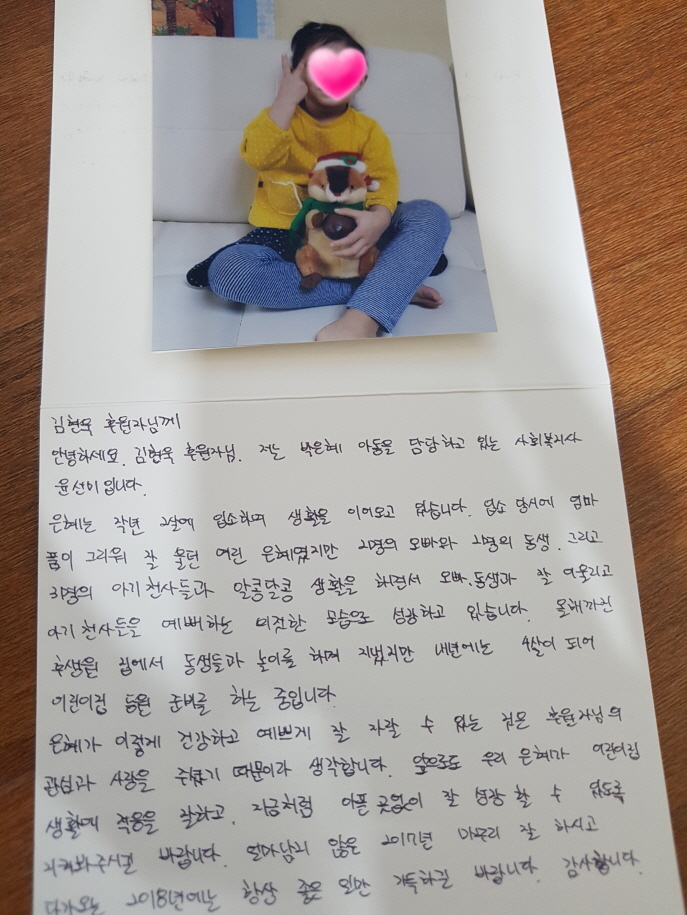 김현욱 후원자님께
안녕하세요. 김현욱 후원자님. 저는 박은혜 아동을 담당하고 있는 사회복지사
윤선이입니다.
은혜는 작년 2살에 입소하여 생활을 이어오고 있습니다. 입소 당시에 엄마
품이 그리워 잘 울던 어린 은혜였지만 2명의 오빠와 1명의 동생. 그리고
3명의 아기천사들과 알콩달콩 생활을 하면서 오빠.동생과 잘 어울리고
아기천사들을 예뻐하는 의젓한 모습으로 성장하고 있습니다. 올해까진
후생원 집에서 동생들과 놀이를 하며 지냈지만 내년에는 4살이 되어
어린이집 등원 준비를 하는 중입니다.
은혜가 이렇게 건강하고 예쁘게 잘 자랄 수 있는 점은 후원자님의
관심과 사랑을 주셨기 때문이라 생각합니다. 앞으로도 우리 은혜가 어린이집
생활에 적응을 잘하고. 지금처럼 아픈 곳없이 잘 성장 할 수 있도록
지켜봐주시길 바랍니다. 얼마남지 않은 2017년 마무리 잘 하시고
다가오는 2018년에는 항상 좋은 일만 가득하길 바랍니다. 감사합니다.